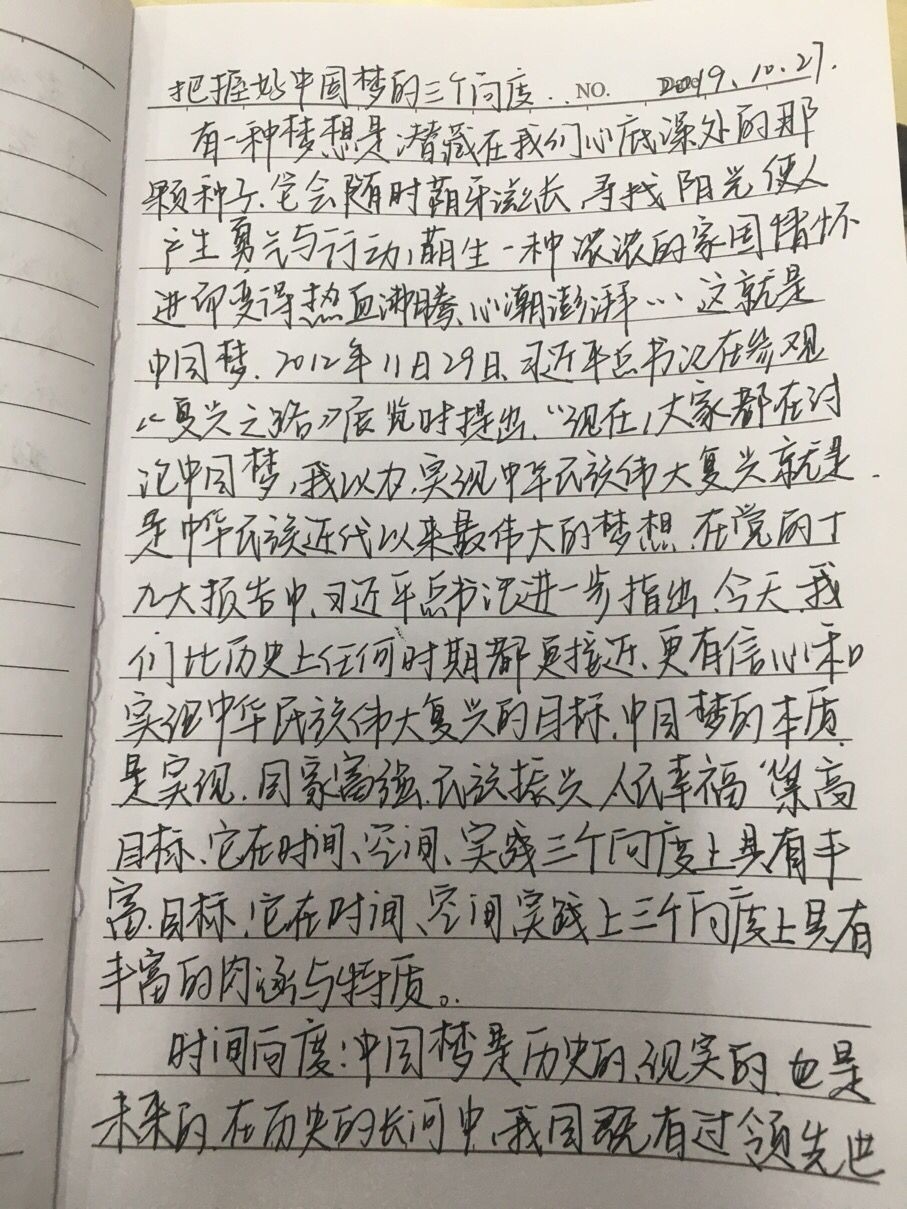 把握好中国梦的三个向度.. NO. Date 2019.10.27.
有一种梦想是潜藏在我们心底深处的那
颗种子、它会随时萌牙滋长、寻找阳光使人
产生勇气与行动,萌生一种浓浓的家国情怀
进而变得热血沸腾、心潮澎湃… 这就是
中国梦、2012年11日29日、习近平总书记在参观
《复兴之路》展览时提出、“现在,大家都在讨
论中国梦,我以为,实现中华民族伟大复兴就是.
是中华民族近代以来最伟大的梦想、在党的十
九大报告中、习近平总书记进一步指出、今天、我
们比历史上任何时期都更接近、更有信心和
实现中华民族伟大复兴的目标、中国梦的本质、
是实现、国家富强、民族振兴 人民幸福“集高
目标、它在时间、空间、实践三个向度上具有丰
富、目标、它在时间、空间实践上三个向度上具有
丰富的内涵与特质。
时间向度:中国梦是历史的、现实的、也是
未来的、在历史的长河中、我国既有过领先世